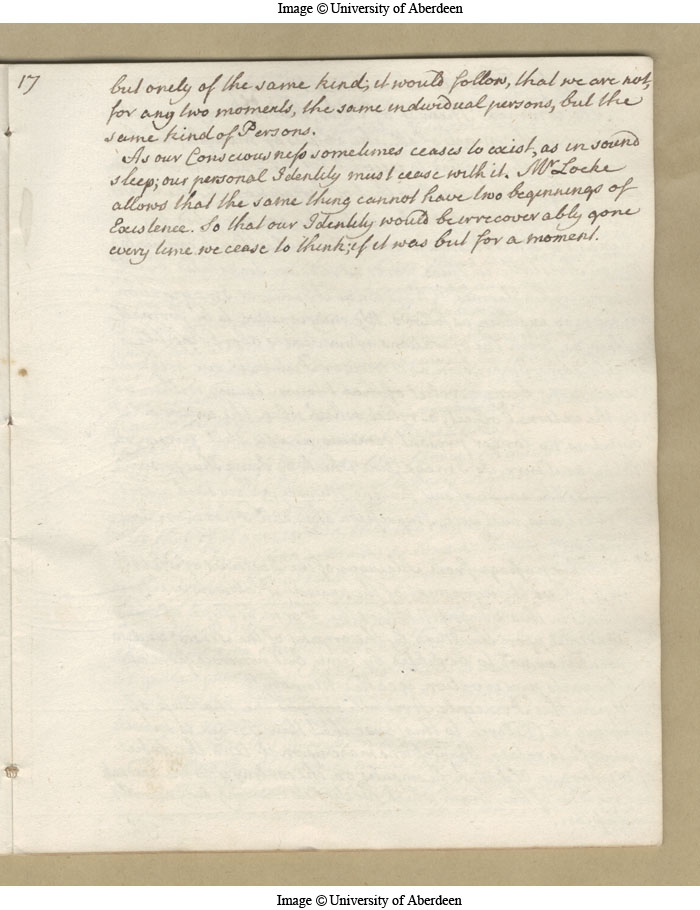 Image © University of Aberdeen
17
but onely of the same kind; it would follow, that we are not,
for any two moments, the same individual persons, but the
same kind of Persons.
As our Consciousness sometimes ceases to exist, as in sound
sleep; our personal Identity must cease with it. Mr Locke
allows that the same thing cannot have two beginnings of
Existence. So that our Identity would be irrecoverably gone
every time we cease to think; if it was but for a moment.
Image © University of Aberdeen